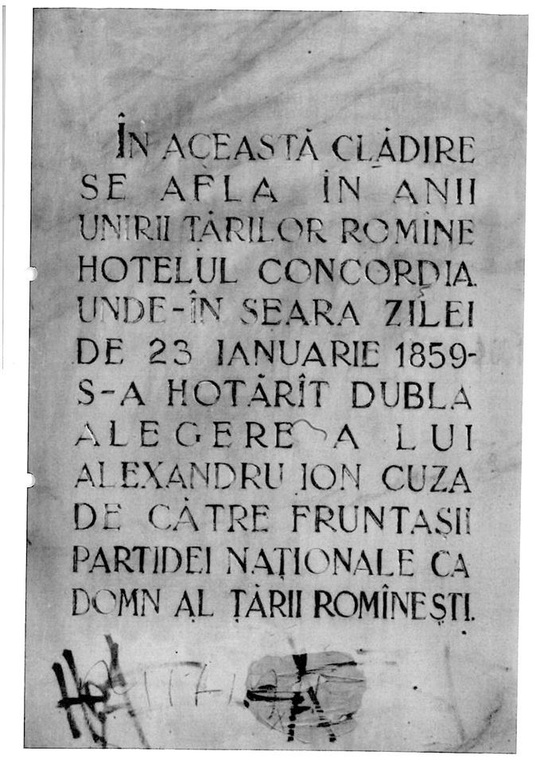 ÎN ACEASTĂ CLĂDIRE
SE AFLA ÎN ANII
UNIRII ȚĂRILOR ROMÎNE
HOTELUL CONCORDIA
UNDE-ÎN SEARA ZILEI
DE 23 IANUARIE 1859-
S-A HOTĂRÎT DUBLA
ALEGERE A LUI
ALEXANDRU ION CUZA
DE CĂTRE FRUNTAȘII
PARTIDEI NAȚIONALE CA
DOMN AL ȚĂRII ROMÎNEȘTI.